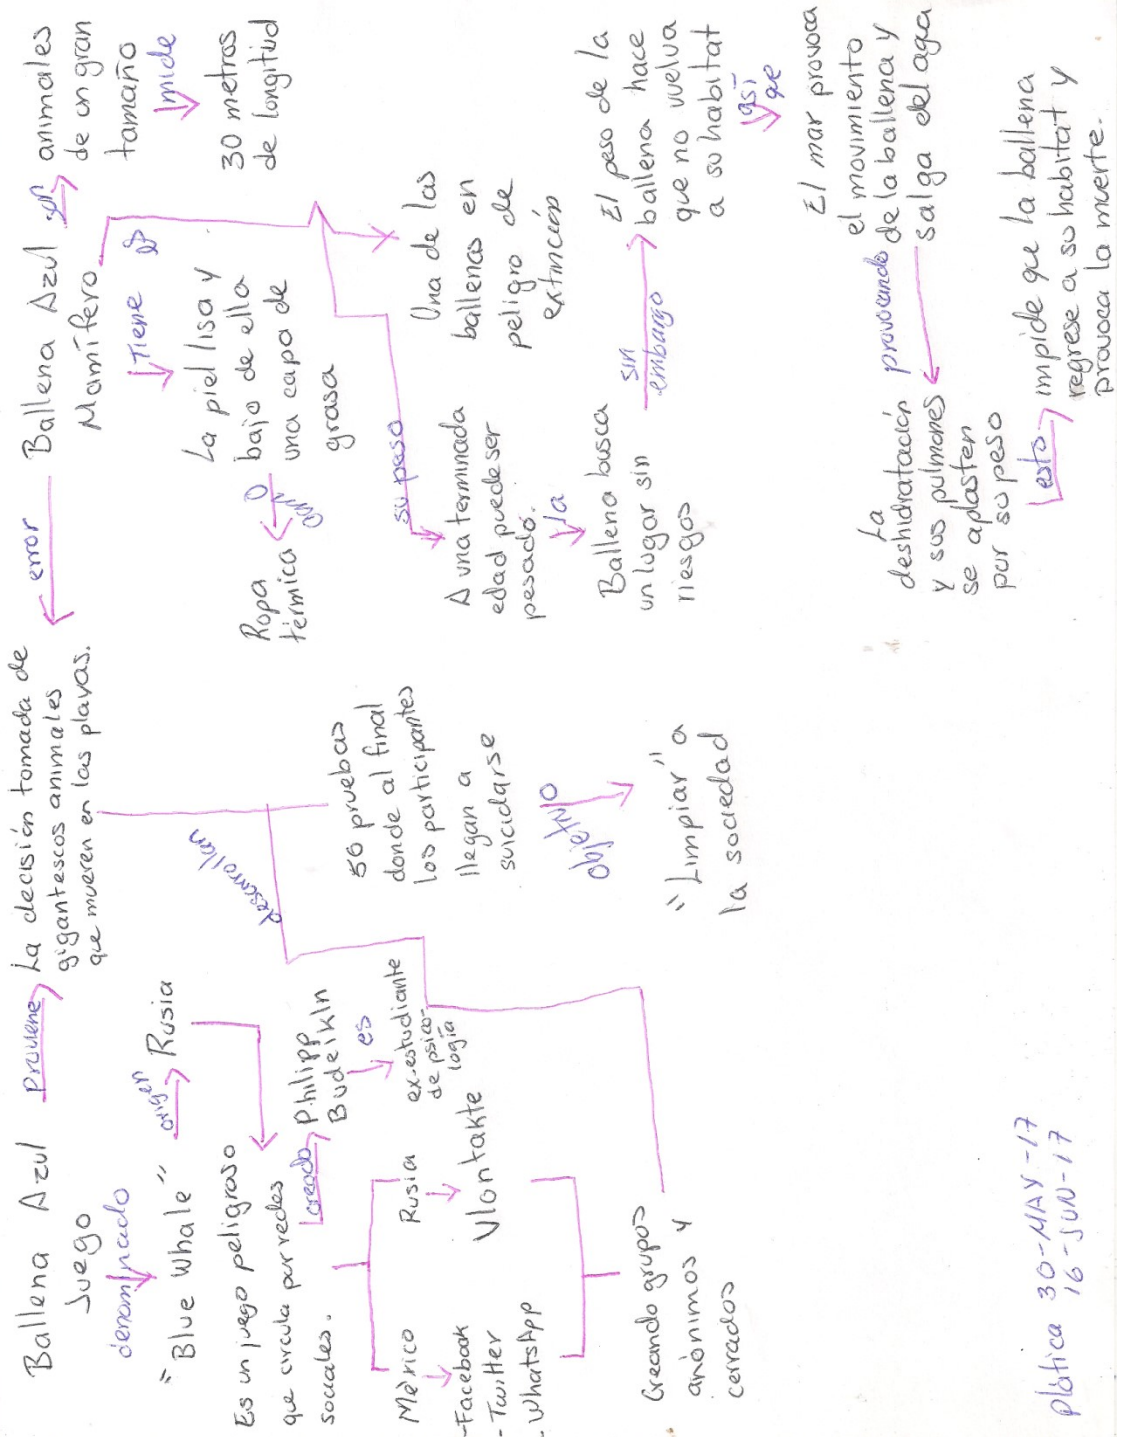 Ballena Azul
Juego
denominado
"Blue Whale"
origen
Rusia
Es un juego peligroso
que circula por redes
sociales.
creado
Philipp
Budeikln
es
ex-estudiante
de psico-
logía
México
-Facebook
-Twitter
-WhatsApp
Rusia
Vlontakte
Creando grupos
anónimos y
cerrados
Proviene
La decisión tomada de
gigantescos animales
que mueren en las playas.
desarrollan
50 pruebas
donde al final
los participantes
llegan a
suicidarse
objetivo
"Limpiar" a
la sociedad
error
Ballena Azul
Mamífero
son
animales
de un gran
tamaño
mide
30 metros
de longitud
Tiene
La piel lisa y
bajo de ella
una capa de
grasa
Ropa
térmica
es
Una de las
ballenas en
peligro de
extinción
su peso
A una terminada
edad puede ser
pesado.
la
Ballena busca
un lugar sin
riesgos
sin
embargo
El peso de la
ballena hace
que no vuelva
a su habitat
así
que
El mar provoca
el movimiento
de la ballena y
salga del agua
provocando
La
deshidratación
y sus pulmones
se aplasten
por su peso
esto
impide que la ballena
regrese a su habitat y
provoca la muerte.
plática 30-MAY-17
16-JUN-17